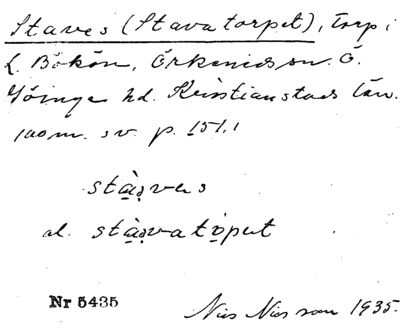 Staves (Stavatorpet), torp i
L. Bökön, Örkeneds sn. Ö.
Göinge hd. Kristianstads län.
100 m. sv. p. 151.1
stàạvəs
al. stàạvatọ̀pət
Nr 5435 Nils Nilsson 1935.